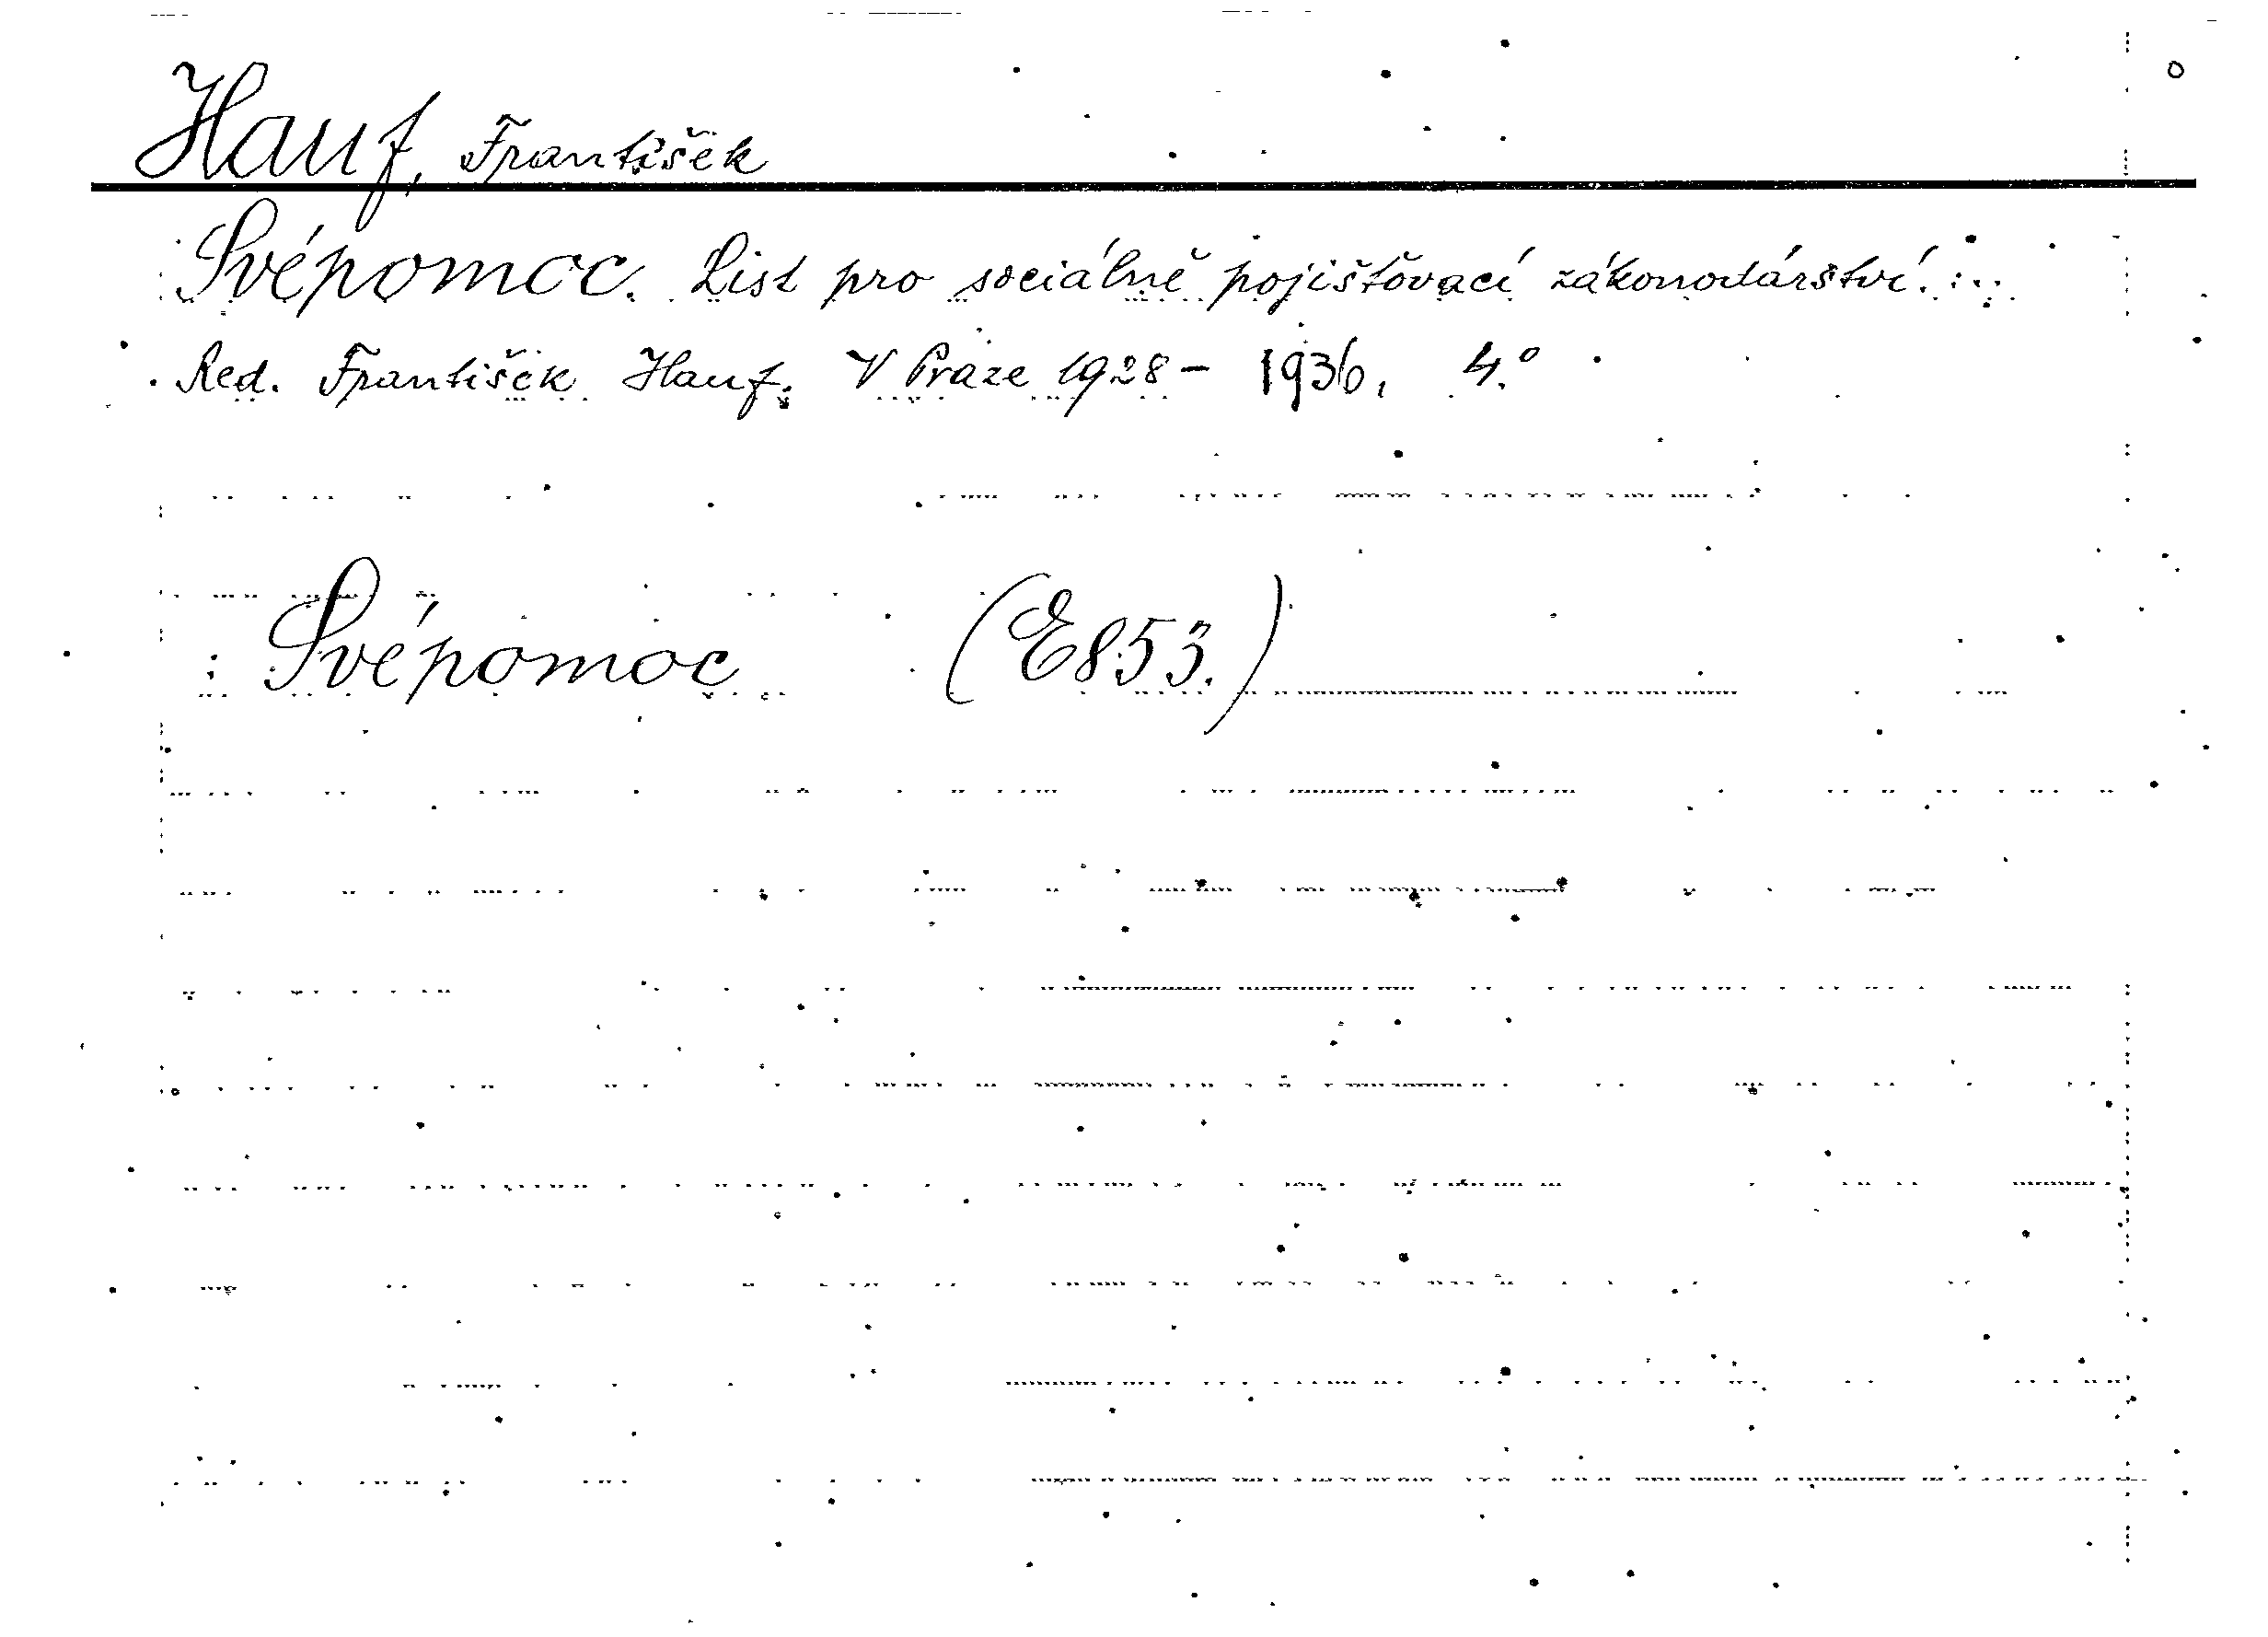 Hauf, František
Svépomoc. List pro sociálně pojišťovací zákonodárství. ...
Red. František Hauf. V Praze 1928 - 1936. 4.°
Svépomoc (E853.)